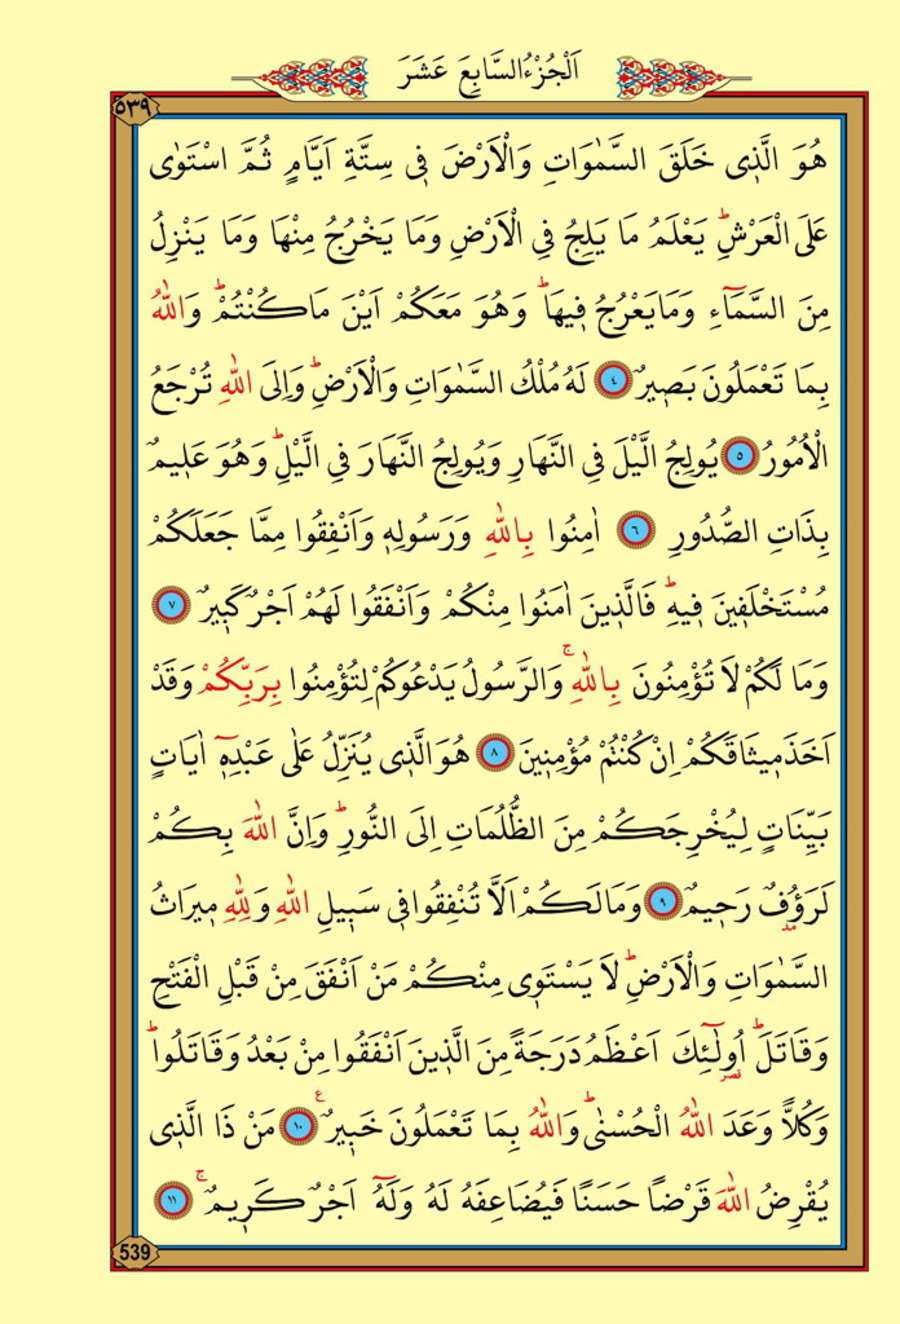 اَلْجُزْءُ السَّابِعَ عَشَرَ
٥٣٩
هُوَ الَّذ۪ى خَلَقَ السَّمٰوَاتِ وَالْاَرْضَ ف۪ى سِتَّةِ اَيَّامٍ ثُمَّ اسْتَوٰى
عَلَى الْعَرْشِۜ يَعْلَمُ مَا يَلِجُ فِى الْاَرْضِ وَمَا يَخْرُجُ مِنْهَا وَمَا يَنْزِلُ
مِنَ السَّمَٓاءِ وَمَا يَعْرُجُ ف۪يهَاۜ وَهُوَ مَعَكُمْ اَيْنَ مَا كُنْتُمْۜ وَاللّٰهُ
بِمَا تَعْمَلُونَ بَص۪يرٌ ٤ لَهُ مُلْكُ السَّمٰوَاتِ وَالْاَرْضِۜ وَاِلَى اللّٰهِ تُرْجَعُ
الْاُمُورُ ٥ يُولِجُ الَّيْلَ فِى النَّهَارِ وَيُولِجُ النَّهَارَ فِى الَّيْلِۜ وَهُوَ عَل۪يمٌ
بِذَاتِ الصُّدُورِ ٦ اٰمِنُوا بِاللّٰهِ وَرَسُولِه۪ وَاَنْفِقُوا مِمَّا جَعَلَكُمْ
مُسْتَخْلَف۪ينَ ف۪يهِۜ فَالَّذ۪ينَ اٰمَنُوا مِنْكُمْ وَاَنْفَقُوا لَهُمْ اَجْرٌ كَب۪يرٌ ٧
وَمَا لَكُمْ لَا تُؤْمِنُونَ بِاللّٰهِۚ وَالرَّسُولُ يَدْعُوكُمْ لِتُؤْمِنُوا بِرَبِّكُمْ وَقَدْ
اَخَذَ م۪يثَاقَكُمْ اِنْ كُنْتُمْ مُؤْمِن۪ينَ ٨ هُوَ الَّذ۪ى يُنَزِّلُ عَلٰى عَبْدِه۪ٓ اٰيَاتٍ
بَيِّنَاتٍ لِيُخْرِجَكُمْ مِنَ الظُّلُمَاتِ اِلَى النُّورِۜ وَاِنَّ اللّٰهَ بِكُمْ
لَرَؤُ۫فٌ رَح۪يمٌ ٩ وَمَا لَكُمْ اَلَّا تُنْفِقُوا ف۪ى سَب۪يلِ اللّٰهِ وَلِلّٰهِ م۪يرَاثُ
السَّمٰوَاتِ وَالْاَرْضِۜ لَا يَسْتَو۪ى مِنْكُمْ مَنْ اَنْفَقَ مِنْ قَبْلِ الْفَتْحِ
وَقَاتَلَۜ اُو۬لٰٓئِكَ اَعْظَمُ دَرَجَةً مِنَ الَّذ۪ينَ اَنْفَقُوا مِنْ بَعْدُ وَقَاتَلُواۜ
وَكُلًّا وَعَدَ اللّٰهُ الْحُسْنٰىۜ وَاللّٰهُ بِمَا تَعْمَلُونَ خَب۪يرٌ ١٠ مَنْ ذَا الَّذ۪ى
يُقْرِضُ اللّٰهَ قَرْضًا حَسَنًا فَيُضَاعِفَهُ لَهُ وَلَهُٓ اَجْرٌ كَر۪يمٌۚ ١١
539